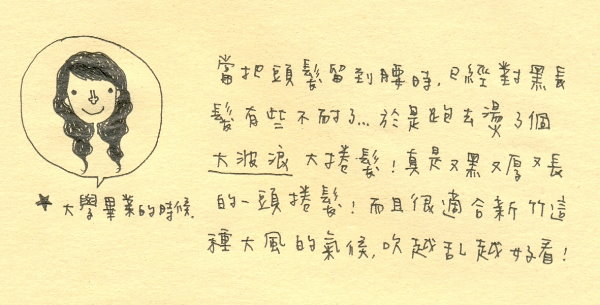 當把頭髮留到腰時,已經對黑長
髮有些不耐了...於是跑去燙了個
大波浪大捲髮!真是又黑又厚又長
的一頭捲髮!而且很適合新竹這
種大風的氣候,吹越乱越好看!
★大學畢業的時候.